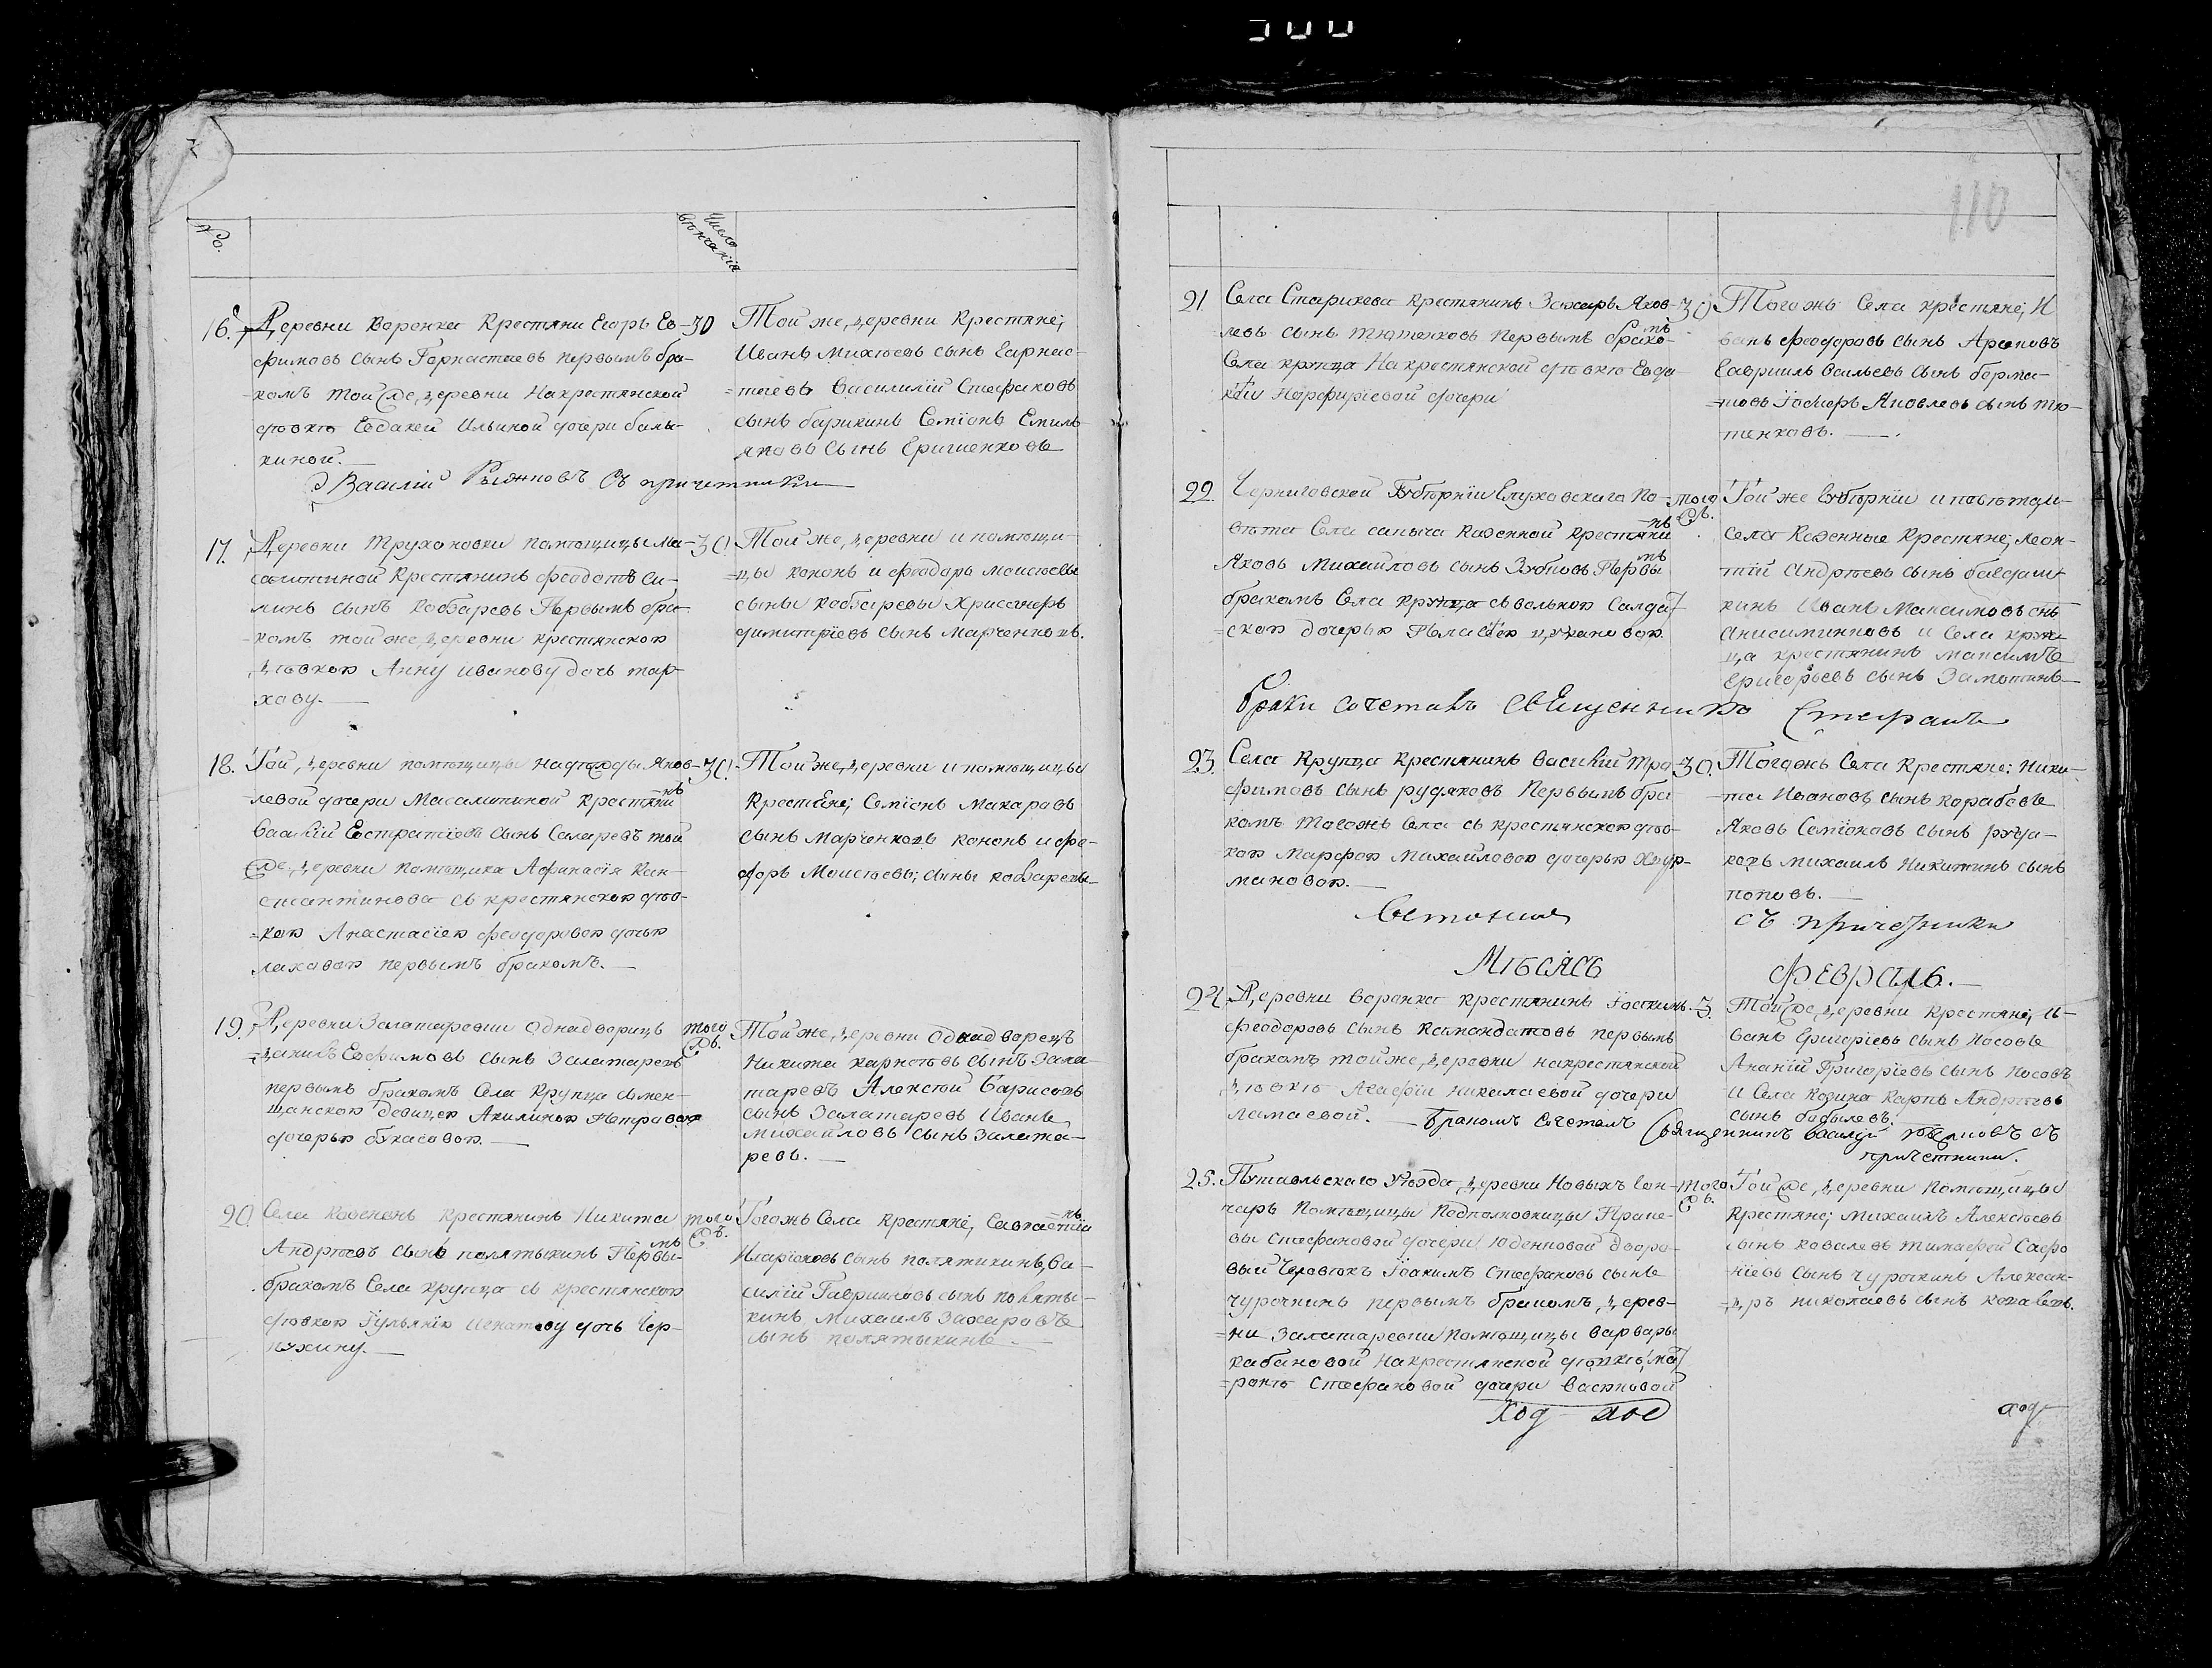 №
Число
вѣнчанія
16. Деревни Воронка Крестянинъ Егоръ Еѳ- 30
фимовъ сынъ Горнастаевъ первымъ бра-
комъ той же деревни на крестянской
дѣвкѣ Евдокеи Ильиной дочери балы-
киной.
Тойже деревни Крестяне;
Иванъ Михѣевъ сынъ Гарнас-
таевъ Василилій Стефановъ
сынъ барикинъ Семіонъ Емиль
яновъ сынъ Гришенковъ
Василій съ причетники
17. Деревни Трухановки помѣщицы Ма- 30
салитиной Крестянинъ Феодотъ Си-
линъ сынъ Кобзаревъ Первымъ бра-
комъ той же деревни крестянскою
дѣвкою Анну иванову дочь тар-
хову.
Той же деревни и помѣщи-
цы кононъ и Феодоръ Моисѣевы
сыны кобзаревы Хрисанѳъ
димитріевъ сынъ Марченковъ.
18. Той деревни помѣщицы надѣжды Яков- 30.
левой дочери Масалитиной крестянинъ
Василій Евстратіевъ сынъ Сларевъ той
же деревни помѣщика Афанасія Кон-
стантинова съ крестянскою дѣв-
кою Анастасіею Феодоровою дочью
лаховою первымъ бракомъ.
Той же деревни и помѣщицы
Крестяне; Семіонъ Макаровъ
сынъ Марченковъ кононъ и фео-
доръ Моисѣевы; сыны кобзаревы
19. Деревни Залатаревки Однадворецъ того
Еѳфимовъ сынъ Залатаревъ Чв.
первымъ бракомъ Села Крупца смен-
щанскою девицею Акилиною Петровою
дочерью букасовою.
Той же деревни Однадворецъ
Никита карнѣевъ сынъ Зала-
таревъ Алексѣй Барисовъ
сынъ Залатаревъ Иванъ
Михайловъ сынъ Залата-
ревъ.
20. Села крестянинъ Никита того
Андрѣевъ сынъ полятыкинъ Первымъ Чв.
бракомъ Села Крупца съ крестянскою
дѣвкою Іульянію Игнатову дочь Чер-
нухину.
Тогожъ Села крестяне; Савастіанъ
Иларіоновъ сынъ полятикинъ, Ва-
силій Гавриловъ сынъ поляты-
кинъ Михаилъ Захаровъ
сынъ полятыкинъ
110
21. Села Старикова крестянинъ Захаръ Яков- 30
левъ сынъ тютюнковъ первымъ бракомъ
Села крупца На крестянской дѣвкѣ Евдо
кіи Порфиріевой дочери
Тогожъ Села крестяне; И
ванъ Феодоровъ сынъ Арановъ
Гаврилъ Васильевъ сынъ борма-
товъ Іосифъ Яковлевъ сынъ тю-
тенковъ.
22. Черниговской Губѣрніи Глуховскаго По- того
вѣта Села сапыча Казенной крестянинъ Чв.
Яковъ Михайловъ сынъ Зубовъ Первымъ
бракомъ Села Крупца съ вольною Салдат
скою дочерью Пелагеею цукановою.
Той же Губѣрніи и повѣта
села Казенные крестяне; Леон-
тій Андрѣевъ сынъ
кинъ Иванъ Максимовъ снъ
Анисимниковъ и Села круп-
ца крестянинъ Максимъ
Григорьевъ сынъ Замотинъ
браки сочеталъ священникъ Стефанъ
23. Села Крупца крестянинъ Василій Тро- 30.
фимовъ сынъ рудаковъ Первымъ бра
комъ Тогожъ села съ крестянскою дѣв-
кою Марфою Михайловою дочерью
мановою.
Тогожъ Села крестяне: Ники-
та Ивановъ сынъ коробовъ
Яковъ Семіоновъ сынъ руда-
ковъ Михаилъ Никитинъ сынъ
поповъ.
съ причетники
Мѣсяцъ Февраль.
24. Деревни Воронка крестянинъ Іоакимъ 3.
Феодоровъ сынъ Камондатовъ первымъ
бракомъ той же деревни на крестянской
дѣвкѣ Агафіи Николаевой дочери
Ламаевой.
Той же деревни Крестяне, И-
ванъ Григоріевъ сынъ Носовъ
Ананій Григоріевъ сынъ Носовъ
и Села Козина Карпъ Андрѣевъ
сынъ бобылевъ.
бракомъ сочеталъ священникъ Василій съ
причетники.
25. Путивльскаго Уѣзда деревни Новыхъ Гон- того
чаръ помѣщицы Подполковницы Праско- Чв.
вы Стефановой дочери Юденковой дворо-
вый Человѣкъ Іоакимъ Стефановъ сынъ
чурочкинъ первымъ бракомъ дерев-
ни Залатаревки помѣщицы варвары
кабановой на крестянской дѣвкѣ мат
ронѣ Стефановой дочери
Той же деревни помѣщицы
крестяне; Михаилъ Алексѣевъ
сынъ ковалевъ Тимофей Сафо
ніевъ сынъ чурочкинъ Алексан-
дръ николаевъ сынъ ковалевъ.